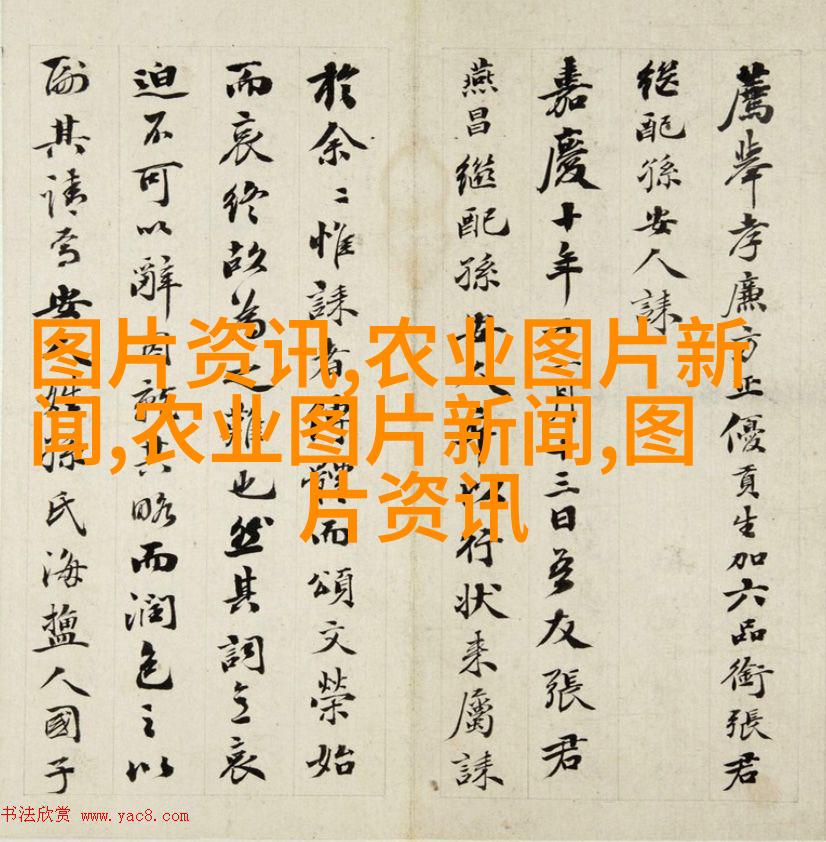 薦舉孝廉方正優貢生加六品銜張君
繼配孫安人誄
嘉慶十年
月十三日吾友張君
燕昌繼配孫安人
以行状来屬誄
於余余惟誄者
而頌文榮始
而哀終故為之難也然其詞立哀
迫不可以辭因敘其略而潤色之以
副其請焉安人姓孫氏海鹽人國子
图片资讯,农业图片新
闻,农业图片新闻,图
片资讯
书法欣赏 www.yac8.com